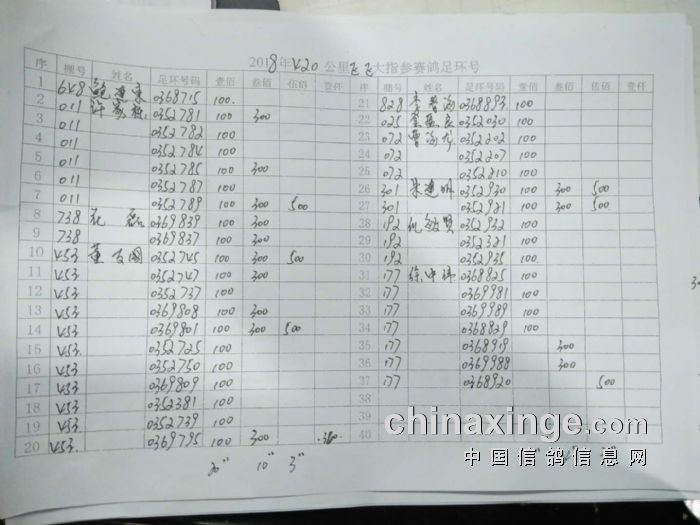 2018年 420 公里 大指参赛鸽足环号
序 棚号 姓名 足环号码 壹佰 叁佰 伍佰 壹仟
1 648 0368715 100
2 011 0352781 100 300
3 011 0352782 100
4 011 0352784 100
5 011 0352785 100 300
6 011 0352787 100
7 011 0352789 100 300 500
8 738 花磊 0369839 100 300
9 738 0369837 100 300
10 453 董友国 0352745 100 300 500
11 453 0352747 100 300
12 453 0352737 100
13 453 0369808 100 300
14 453 0369801 100 300 500
15 453 0352725 100
16 453 0352750 100
17 453 0369809 100
18 453 0352381 100
19 453 0352739 100
20 453 0369795 100 300
10" 3"
序 棚号 姓名 足环号码 壹佰 叁佰 伍佰 壹仟
21 828 0368893 100
22 025 0352030 100
23 072 0352202 100
24 072 0352207 100
25 072 0352210 100
26 301 0352930 100 300 500
27 301 0352921 100 300 500
28 192 0352932 100
29 192 0352321 100
30 192 0352935 100
31 177 0368825 100
32 177 0369981 100
33 177 0369989 100
34 177 0368829 100
35 177 0368919 300
36 177 0369988 300
37 177 0368920 500
38
39
40
chinaxinge.com
中国信鸽信息网